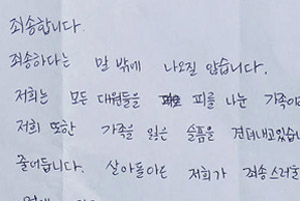 죄송합니다.
죄송하다는 말 밖에 나오질 않습니다.
저희는 모든 대원들을 피를 나눈 가족이
저희 또한 가족을 잃은 슬픔을 견뎌내고있습니
줄어듭니다. 살아돌아온 저희가 죄송스러